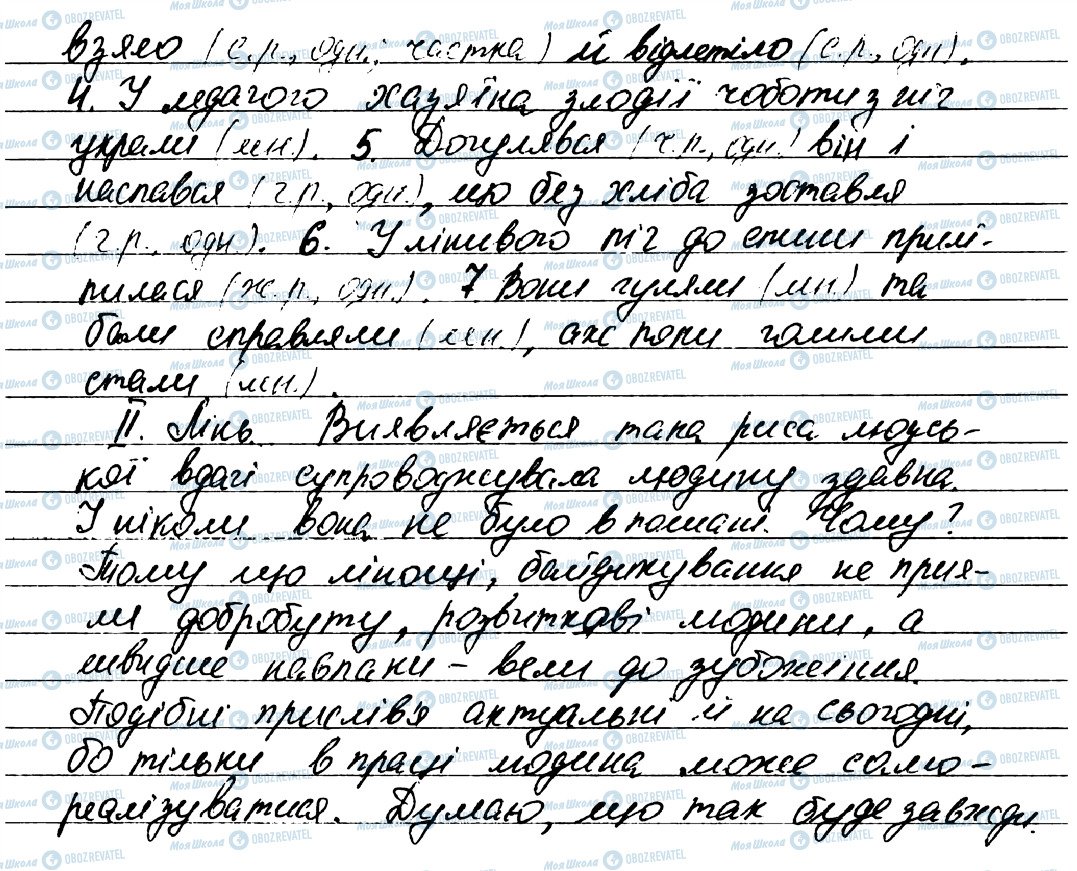 взяло (с.р., одн., частка) й відлетіло (с.р., одн).
4. У ледачого хазяїна злодії чоботи з ніг
украли (мн.). 5. Догулявся (ч.р., одн.) він і
наспався (ч.р., одн.), що без хліба зоставля
(ч.р., одн). 6. У лінивого піч до спини прилі-
пилася (ж.р., одн.). 7. Вони гуляли (мн.) та
бали справляли (мн.), аж поки голими
стали (мн.).
II. Лінь. Виявляється така риса людсь-
кої вдачі супроводжувала людину здавна.
І ніколи вона не було в пошані. Чому?
Тому що лінощі, байдикування не прия-
ли добробуту, розвиткові людини, а
швидше навпаки – вели до зубожіння.
Подібні прислів'я актуальні й на сьогодні,
бо тільки в праці людина може само-
реалізуватися. Думаю, що так буде завжди.